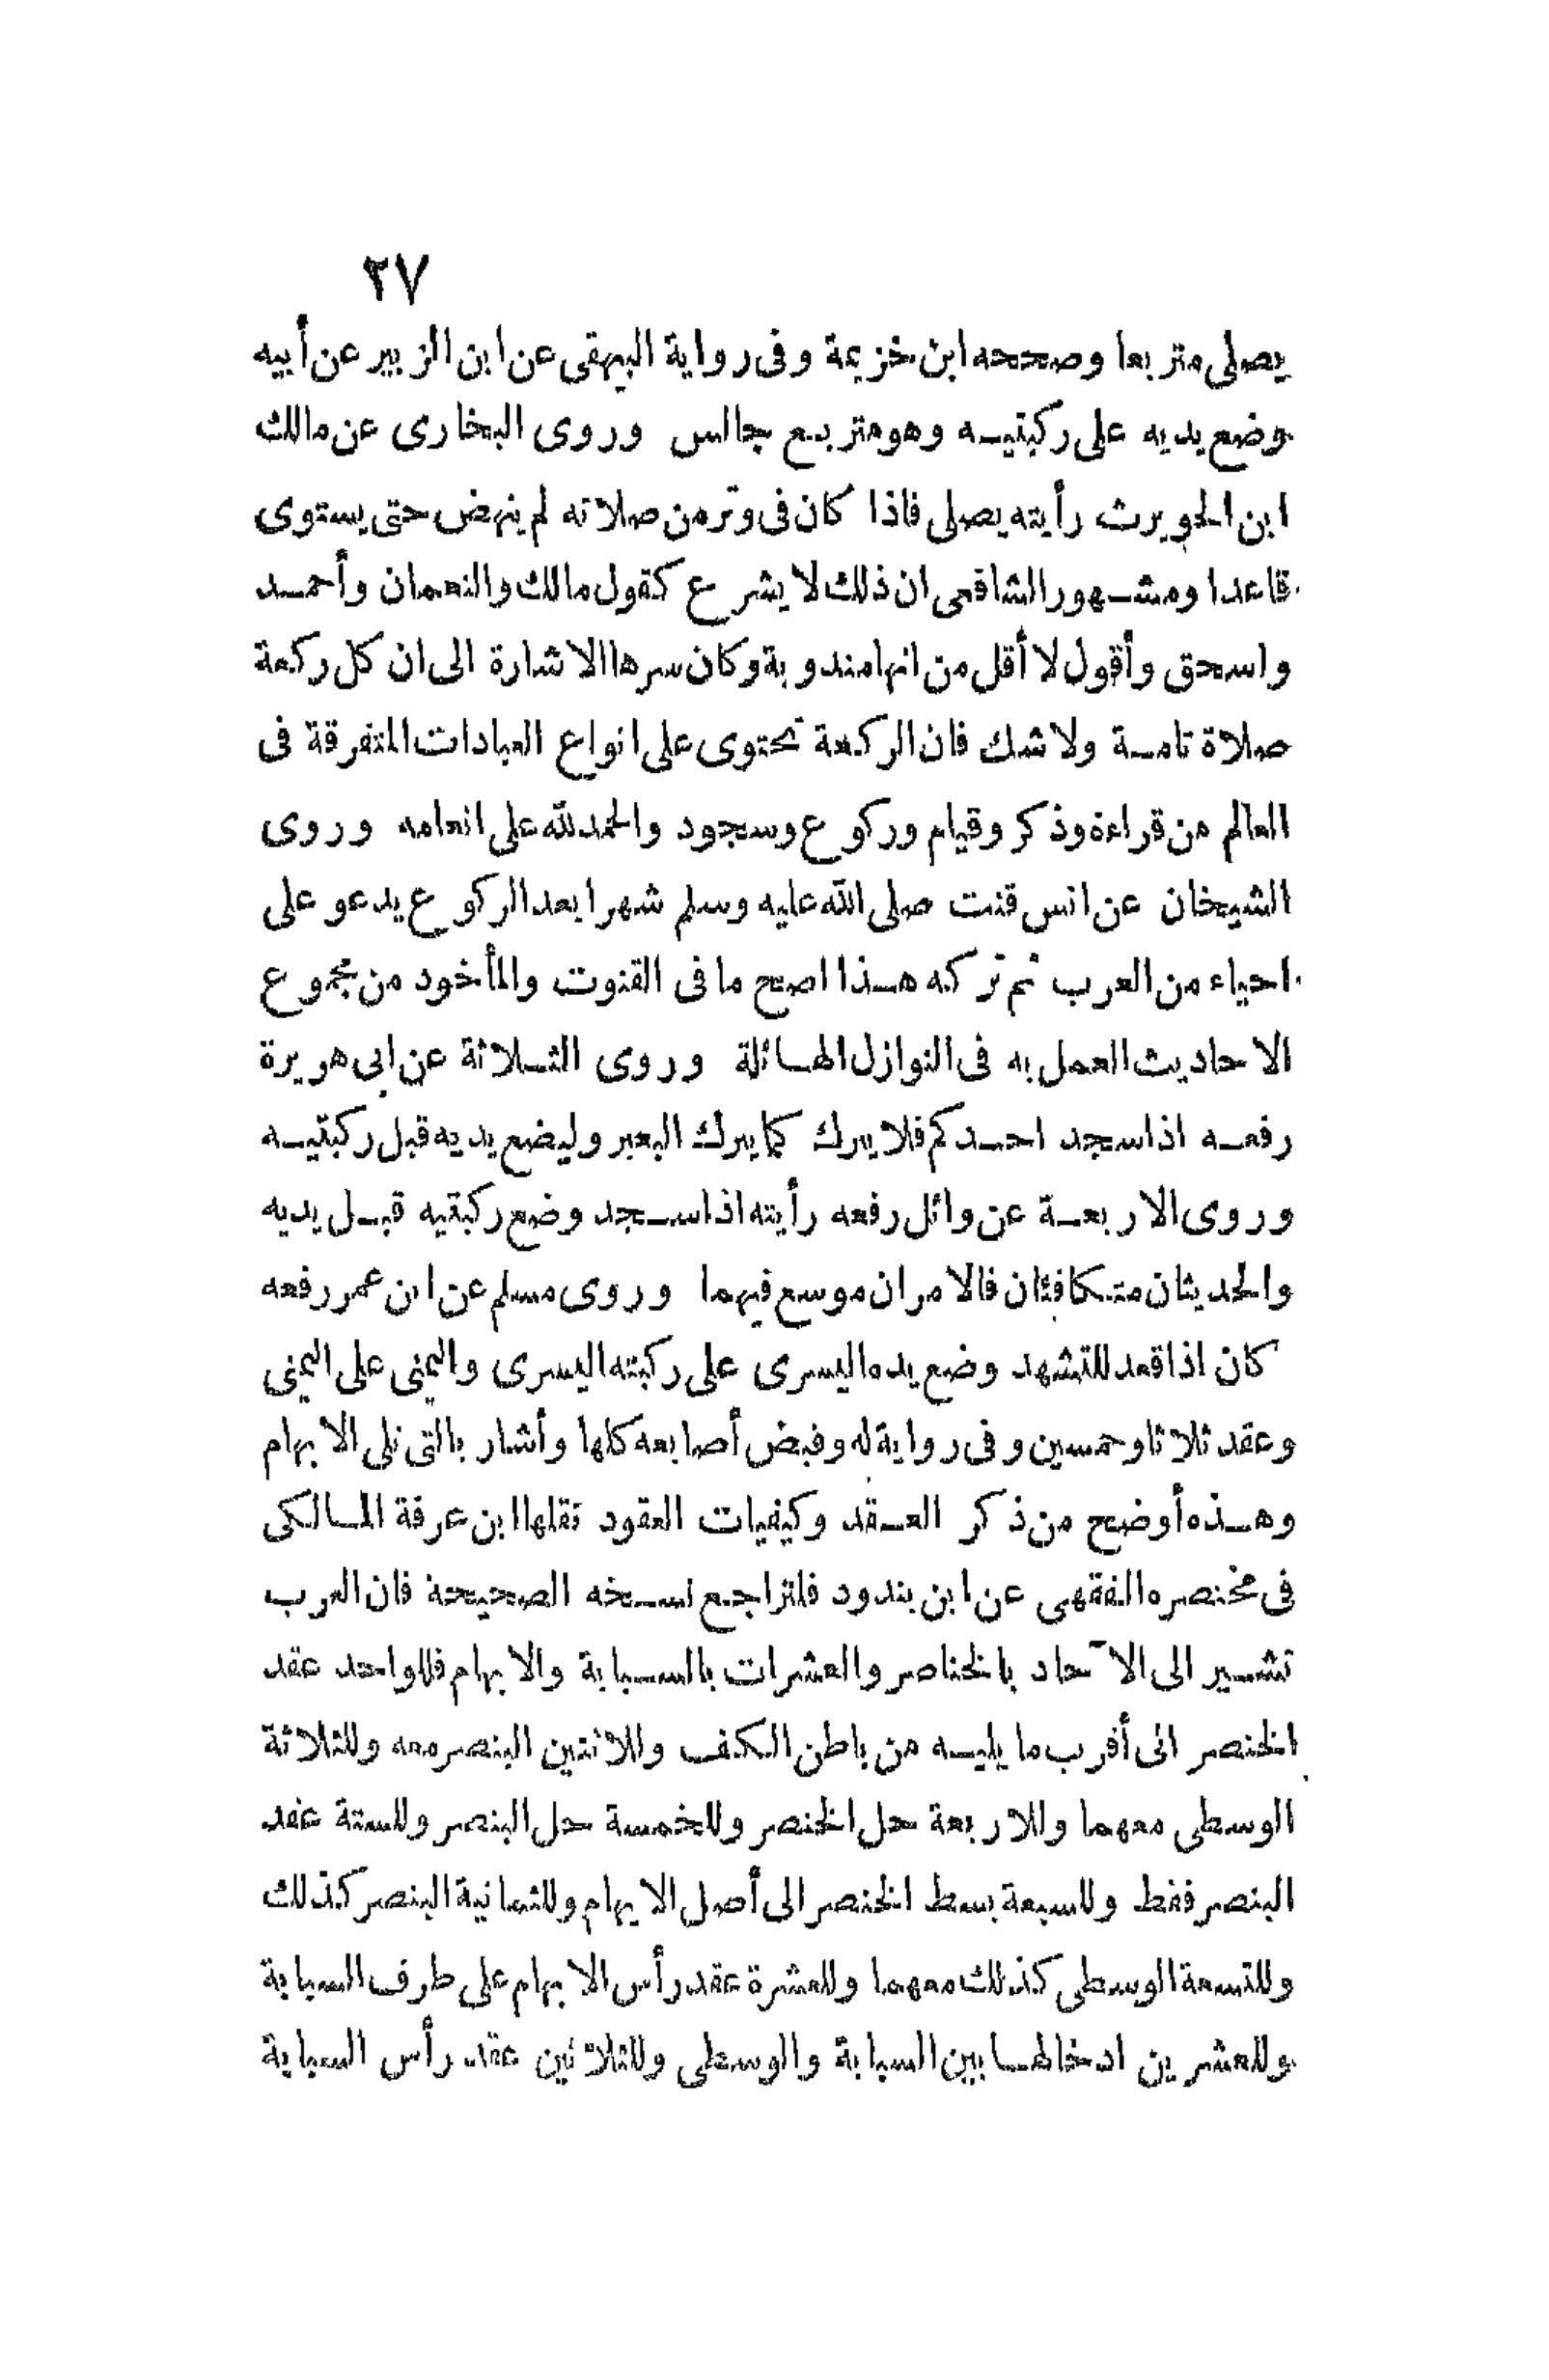 ٢٧
يصلى متربعا وصححه ابن خزيمة وفى رواية البيهقى عن ابن الزبير عن أبيه
وضع يديه على ركبتيه وهو متربع جالس وروى البخارى عن مالك
ابن الحويرث رأيته يصلى فاذا كان فى وتر من صلاته لم ينهض حتى يستوى
قاعدا ومشهور الشافعى ان ذلك لا يشرع كقول مالك والنعمان وأحمد
واسحق وأقول لا أقل من انها مندوبة وكان سرها الاشارة الى ان كل ركعة
صلاة تامة ولا شك فان الركعة تحتوى على انواع العبادات المتفرقة فى
العالم من قراءة وذكر وقيام وركوع وسجود والحمد لله على انعامه وروى
الشيخان عن انس قنت صلى الله عليه وسلم شهرا بعد الركوع يدعو على
احياء من العرب ثم تركه هذا اصح ما فى القنوت والمأخود من مجموع
الاحاديث العمل به فى النوازل الهائلة وروى الثلاثة عن ابى هريرة
رفعه اذا سجد احدكم فلا يبرك كما يبرك البعير وليضع يديه قبل ركبتيه
وروى الاربعة عن وائل رفعه رأيته اذا سجد وضع ركبتيه قبل يديه
والحديثان متكافئان فالامران موسع فيهما وروى مسلم عن ابن عمر رفعه
كان اذا قعد للتشهد وضع يده اليسرى على ركبته اليسرى واليمنى على اليمنى
وعقد ثلاثا وخمسين وفى رواية له وقبض أصابعه كلها وأشار بالتى تلى الابهام
وهذه أوضح من ذكر العقد وكيفيات العقود نقلها ابن عرفة المالكى
فى مختصره الفقهى عن ابن بندود فلتراجع نسخه الصحيحة فان العرب
تشير الى الآحاد بالخناصر والعشرات بالسبابة والابهام فللواحد عقد
الخنصر الى أقرب ما يليه من باطن الكف وللاثنين البنصر معه وللثلاثة
الوسطى معهما وللاربعة حل الخنصر وللخمسة حل البنصر وللستة عقد
البنصر فقط وللسبعة بسط الخنصر الى أصل الابهام وللثمانية البنصر كذلك
وللتسعة الوسطى كذلك معهما وللعشرة عقد رأس الابهام على طرف السبابة
وللعشرين ادخالها بين السبابة والوسطى وللثلاثين عقد رأس السبابة